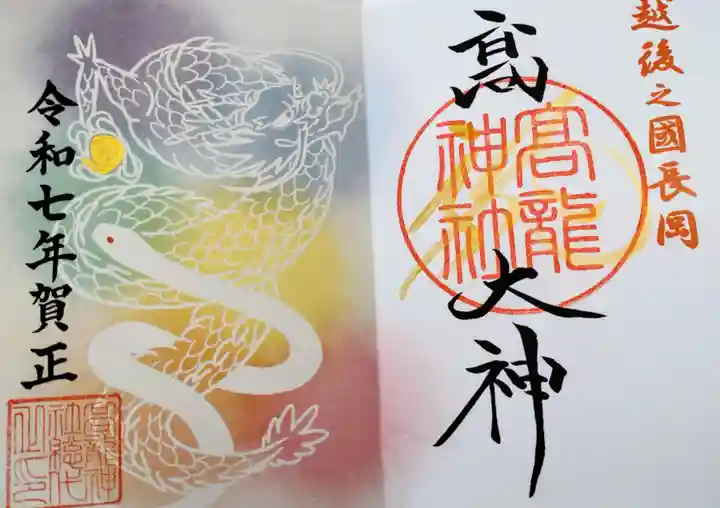 越後之國長岡
高龍大神
高龍神社
令和七年賀正